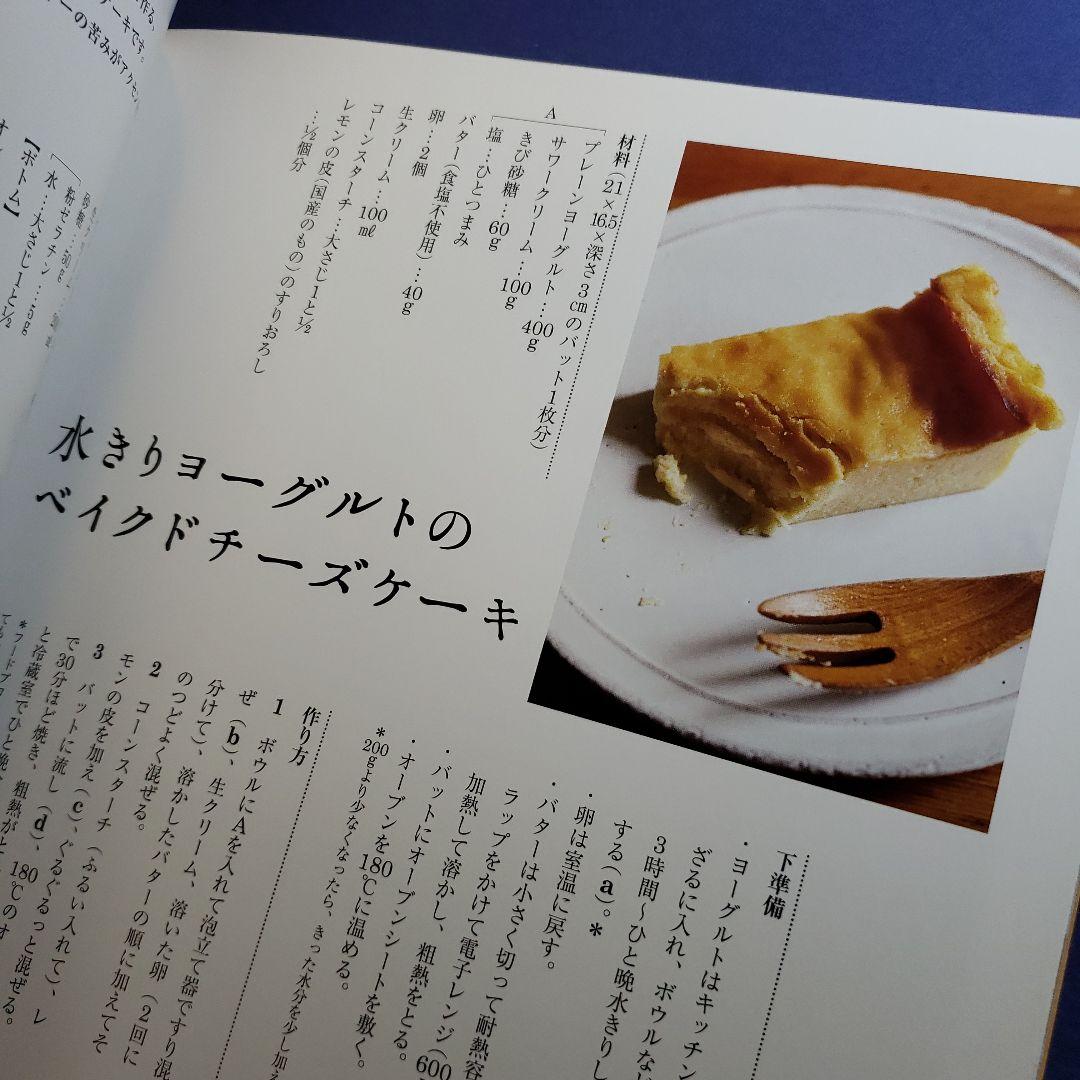 作る、
ーキです。
ーの苦みがアクセン
【ボトム】
水…大さじ1と½
粉ゼラチン…5g
砂糖…50g
材料(21×16.5×深さ3㎝のバット1枚分)
A
プレーンヨーグルト…400g
サワークリーム…100g
きび砂糖…60g
塩…ひとつまみ
バター(食塩不使用)…40g
卵…2個
生クリーム…100㎖
コーンスターチ…大さじ1と½
レモンの皮(国産のもの)のすりおろし
…½個分
水きりヨーグルトの
ベイクドチーズケーキ
下準備
・ヨーグルトはキッチン
ざるに入れ、ボウルなど
3時間〜ひと晩水きりし
する(a)。*
・卵は室温に戻す。
・バターは小さく切って耐熱容
ラップをかけて電子レンジ(600
加熱して溶かし、粗熱をとる。
・バットにオーブンシートを敷く。
・オーブンを180℃に温める。
*200gより少なくなったら、きった水分を少し加え
作り方
1 ボウルにAを入れて泡立て器ですり混
ぜ(b)、生クリーム、溶いた卵(2回に
分けて)、溶かしたバターの順に加えてそ
のつどよく混ぜる。
2 コーンスターチ(ふるい入れて)、レ
モンの皮を加え(c)、ぐるぐるっと混ぜる。
3 バットに流し(d)、180℃のオ
で30分ほど焼き、粗熱がと
と冷蔵室でひと晩
*フードプロ
ても